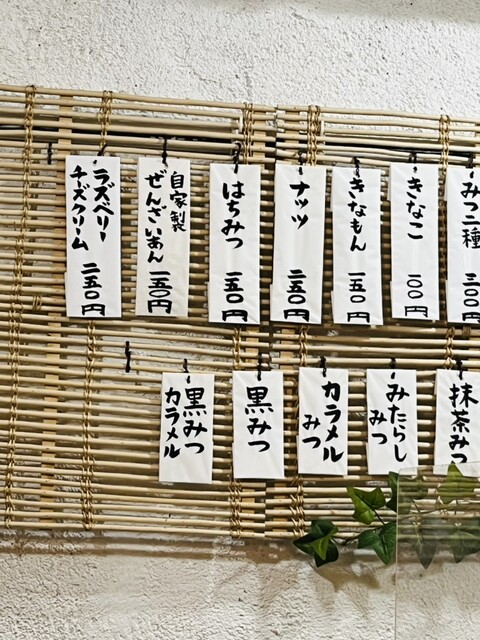 みつ二種
三〇〇円
きなこ
一〇〇円
きなもん
一五〇円
ナッツ
二五〇円
はちみつ
一五〇円
自家製
ぜんざいあん
一五〇円
ラズベリー
チーズクリーム
二五〇円
抹茶みつ
みたらし
みつ
カラメル
みつ
黒みつ
黒みつ
カラメル